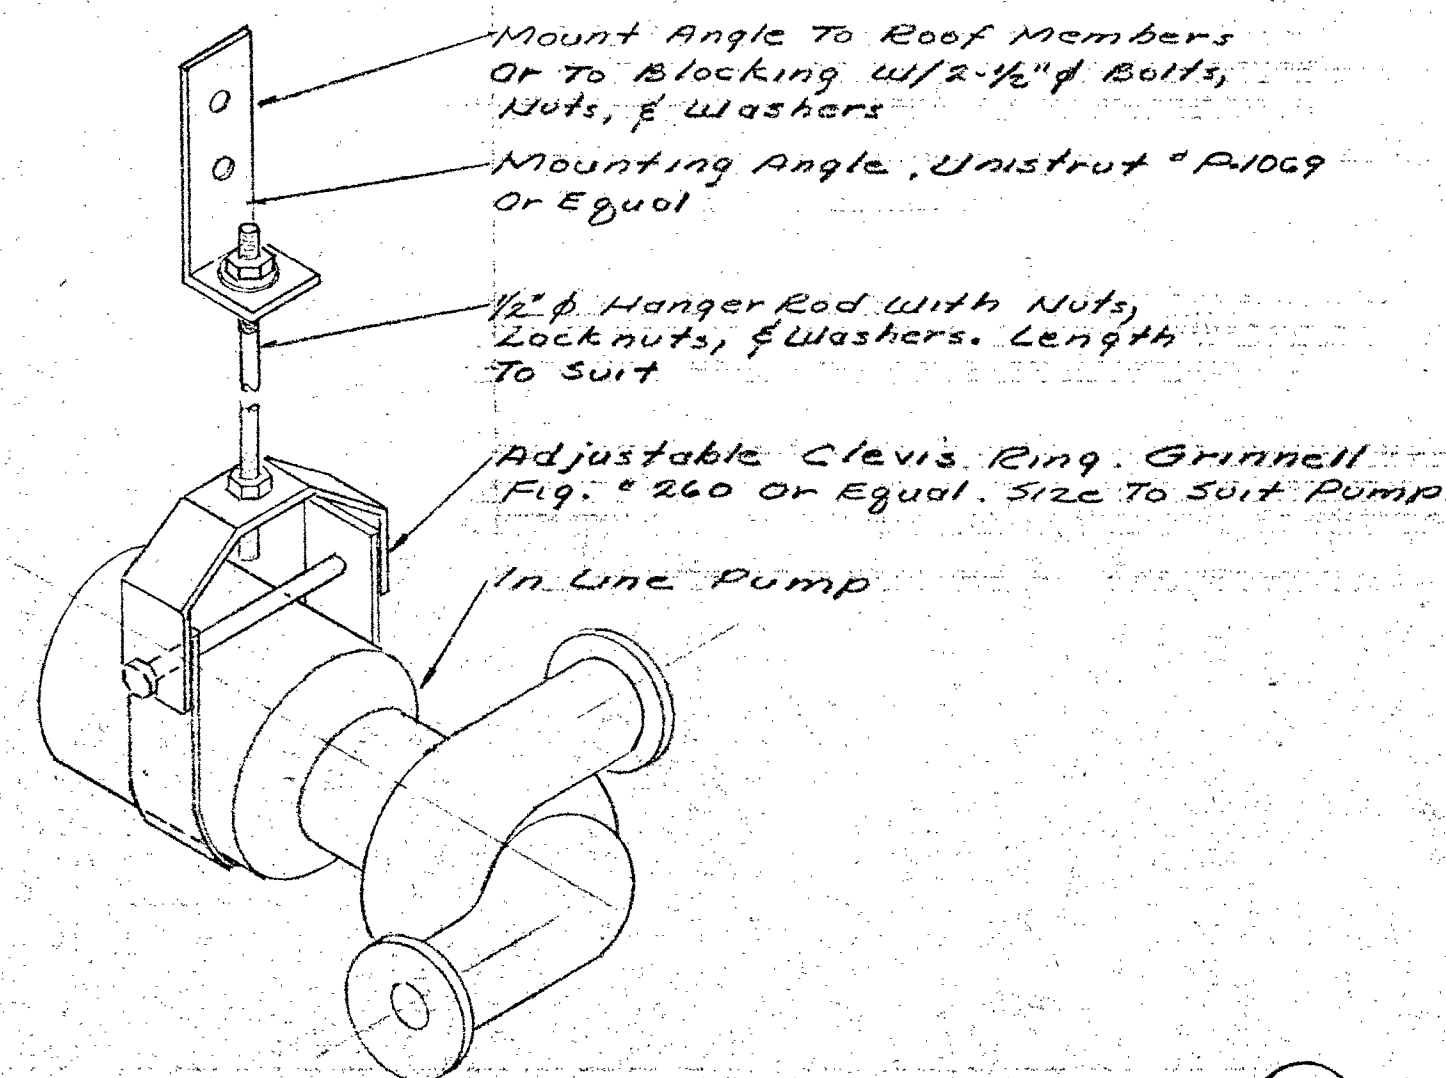 Mount Angle To Roof Members
Or To Blocking W/2-1/2"φ Bolts,
Nuts, & Washers
Mounting Angle, Unistrut # P-1069
Or Equal
1/2"φ Hanger Rod With Nuts,
Locknuts, & Washers. Length
To Suit
Adjustable Clevis Ring. Grinnell
Fig. # 260 Or Equal. Size To Suit Pump
In Line Pump